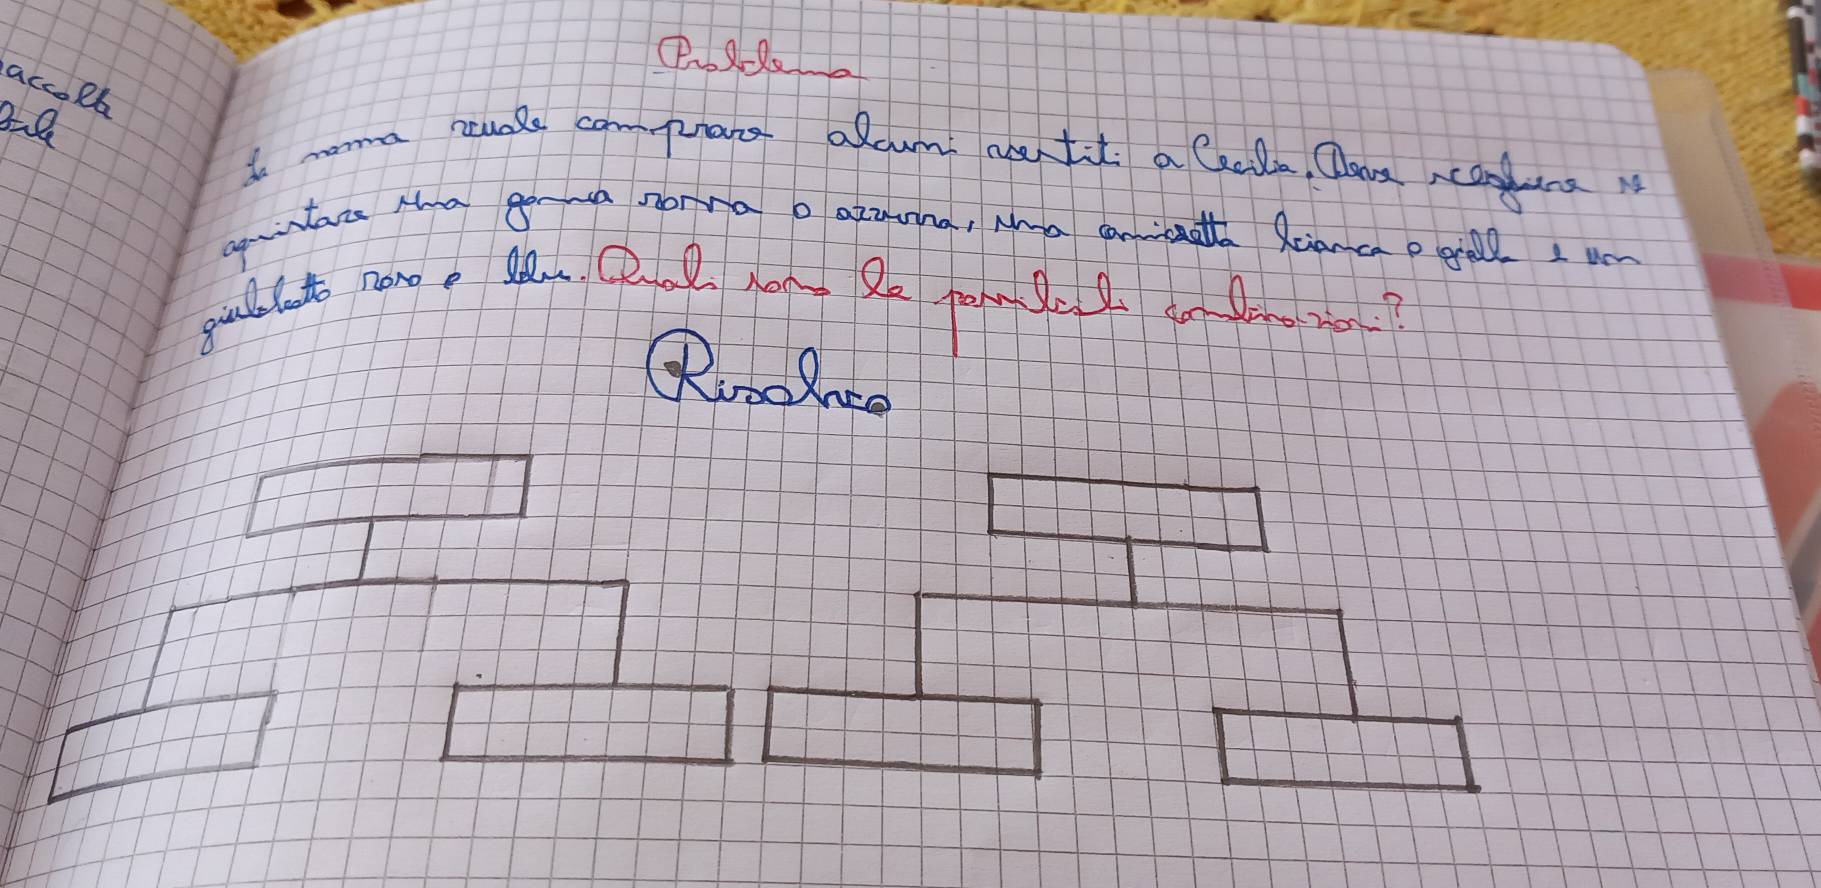 accolta
Problema
La mamma vuole comprare alcuni vestiti a Cecilia. Deve scegliere se
aquistare una gonna rossa o azzurra, una camicetta bianca o gialla e un
giubbotto rosa o blu. Quali sono le possibili combinazioni?
Risolvo